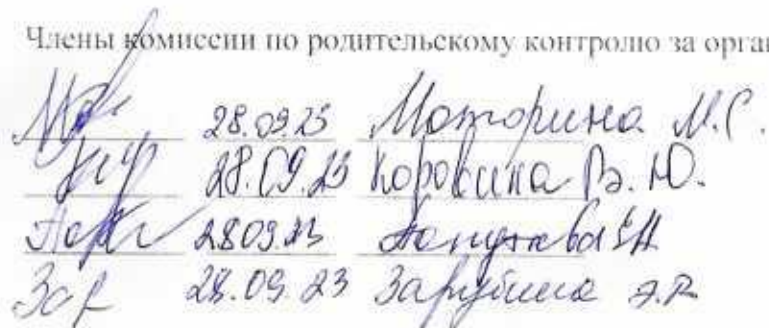 Члены комиссии по родительскому контролю за орган
28.09.23 Моторина М.С.
28.09.23 Коровина В.Ю.
28.09.23
Зар 28.09.23 Зарубина Э.Р.